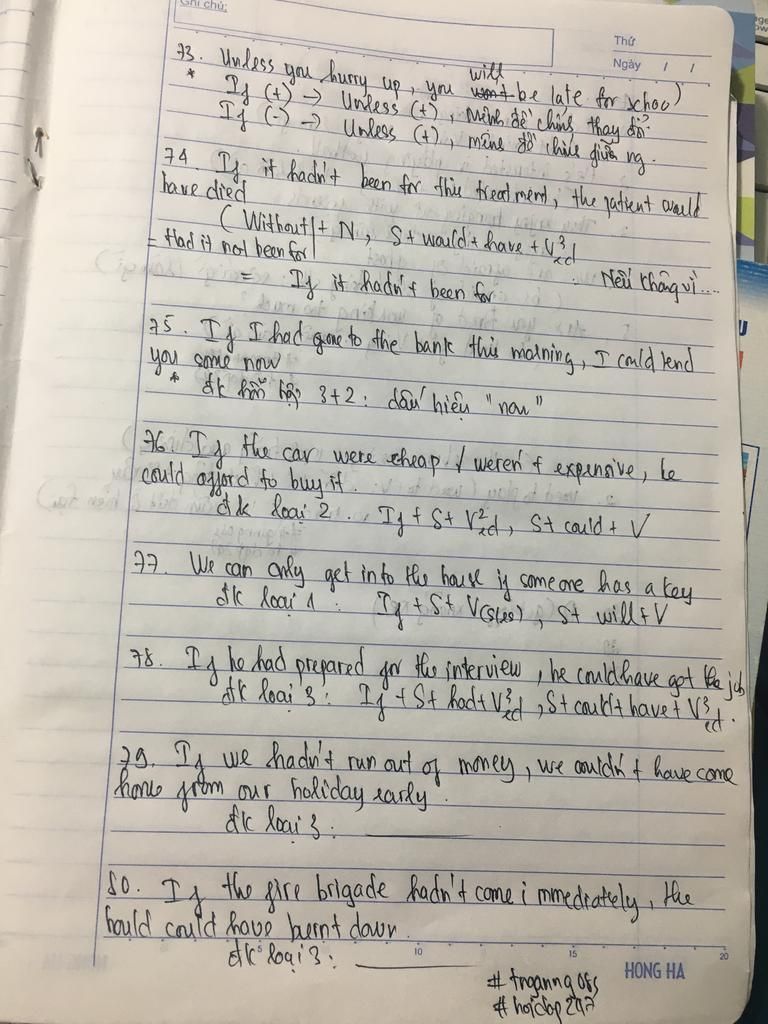 Ghi chú:
Thứ
Ngày / /
73. Unless you hurry up, you will be late for school
* If (+) → Unless (+), mệnh đề chính thay đổi
If (-) → Unless (+), mệnh đề chính giữ ng.
74. If it hadn't been for this treatment, the patient would
have died
(Without + N, S + would + have + V3/ed
= Had it not been for
= If it hadn't been for : Nếu không vì...
75. If I had gone to the bank this morning, I could lend
you some now
* đk hỗn hợp 3+2: dấu hiệu "now"
76. If the car were cheap / weren't expensive, he
could afford to buy it.
đk loại 2. If + S + V2/ed, S + could + V
77. We can only get into the house if someone has a key
đk loại 1: If + S + V(s/es), S + will + V
78. If he had prepared for the interview, he could have got the job
đk loại 3: If + S + had + V3/ed, S + could + have + V3/ed.
79. If we hadn't run out of money, we couldn't have come
home from our holiday early.
đk loại 3:
80. If the fire brigade hadn't come immediately, the
hould could have burnt down.
đk loại 3:
5 10 15 20
HONG HA
#hoidap247